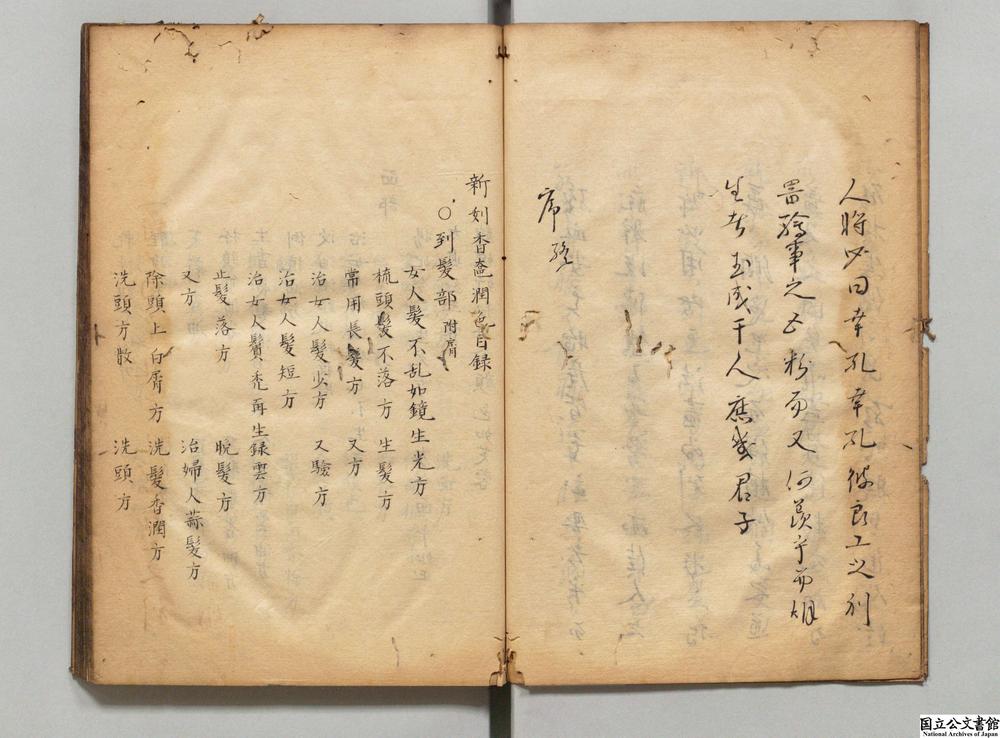 人將必曰幸孔幸孔彼良工之列
事之五粉而又何羡乎而烟
生者玉成千人應幾君子
序
新刻香奩潤色目録
○到髪部附脣
女人髪不乱如鏡生光方
梳頭髪不落方 生髪方
常用長髪方 又方
治女人髪少方 又驗方
治女人髪短方
治女人鬢禿再生録雲方
止髪落方 脫髪方
又方 治婦人蒜髪方
除頭上白屑方 洗髪香潤方
洗頭方散 洗頭方
国立公文書館
National Archives of Japan